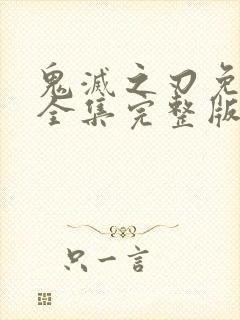 鬼滅之刃免
全集完整版
只一言